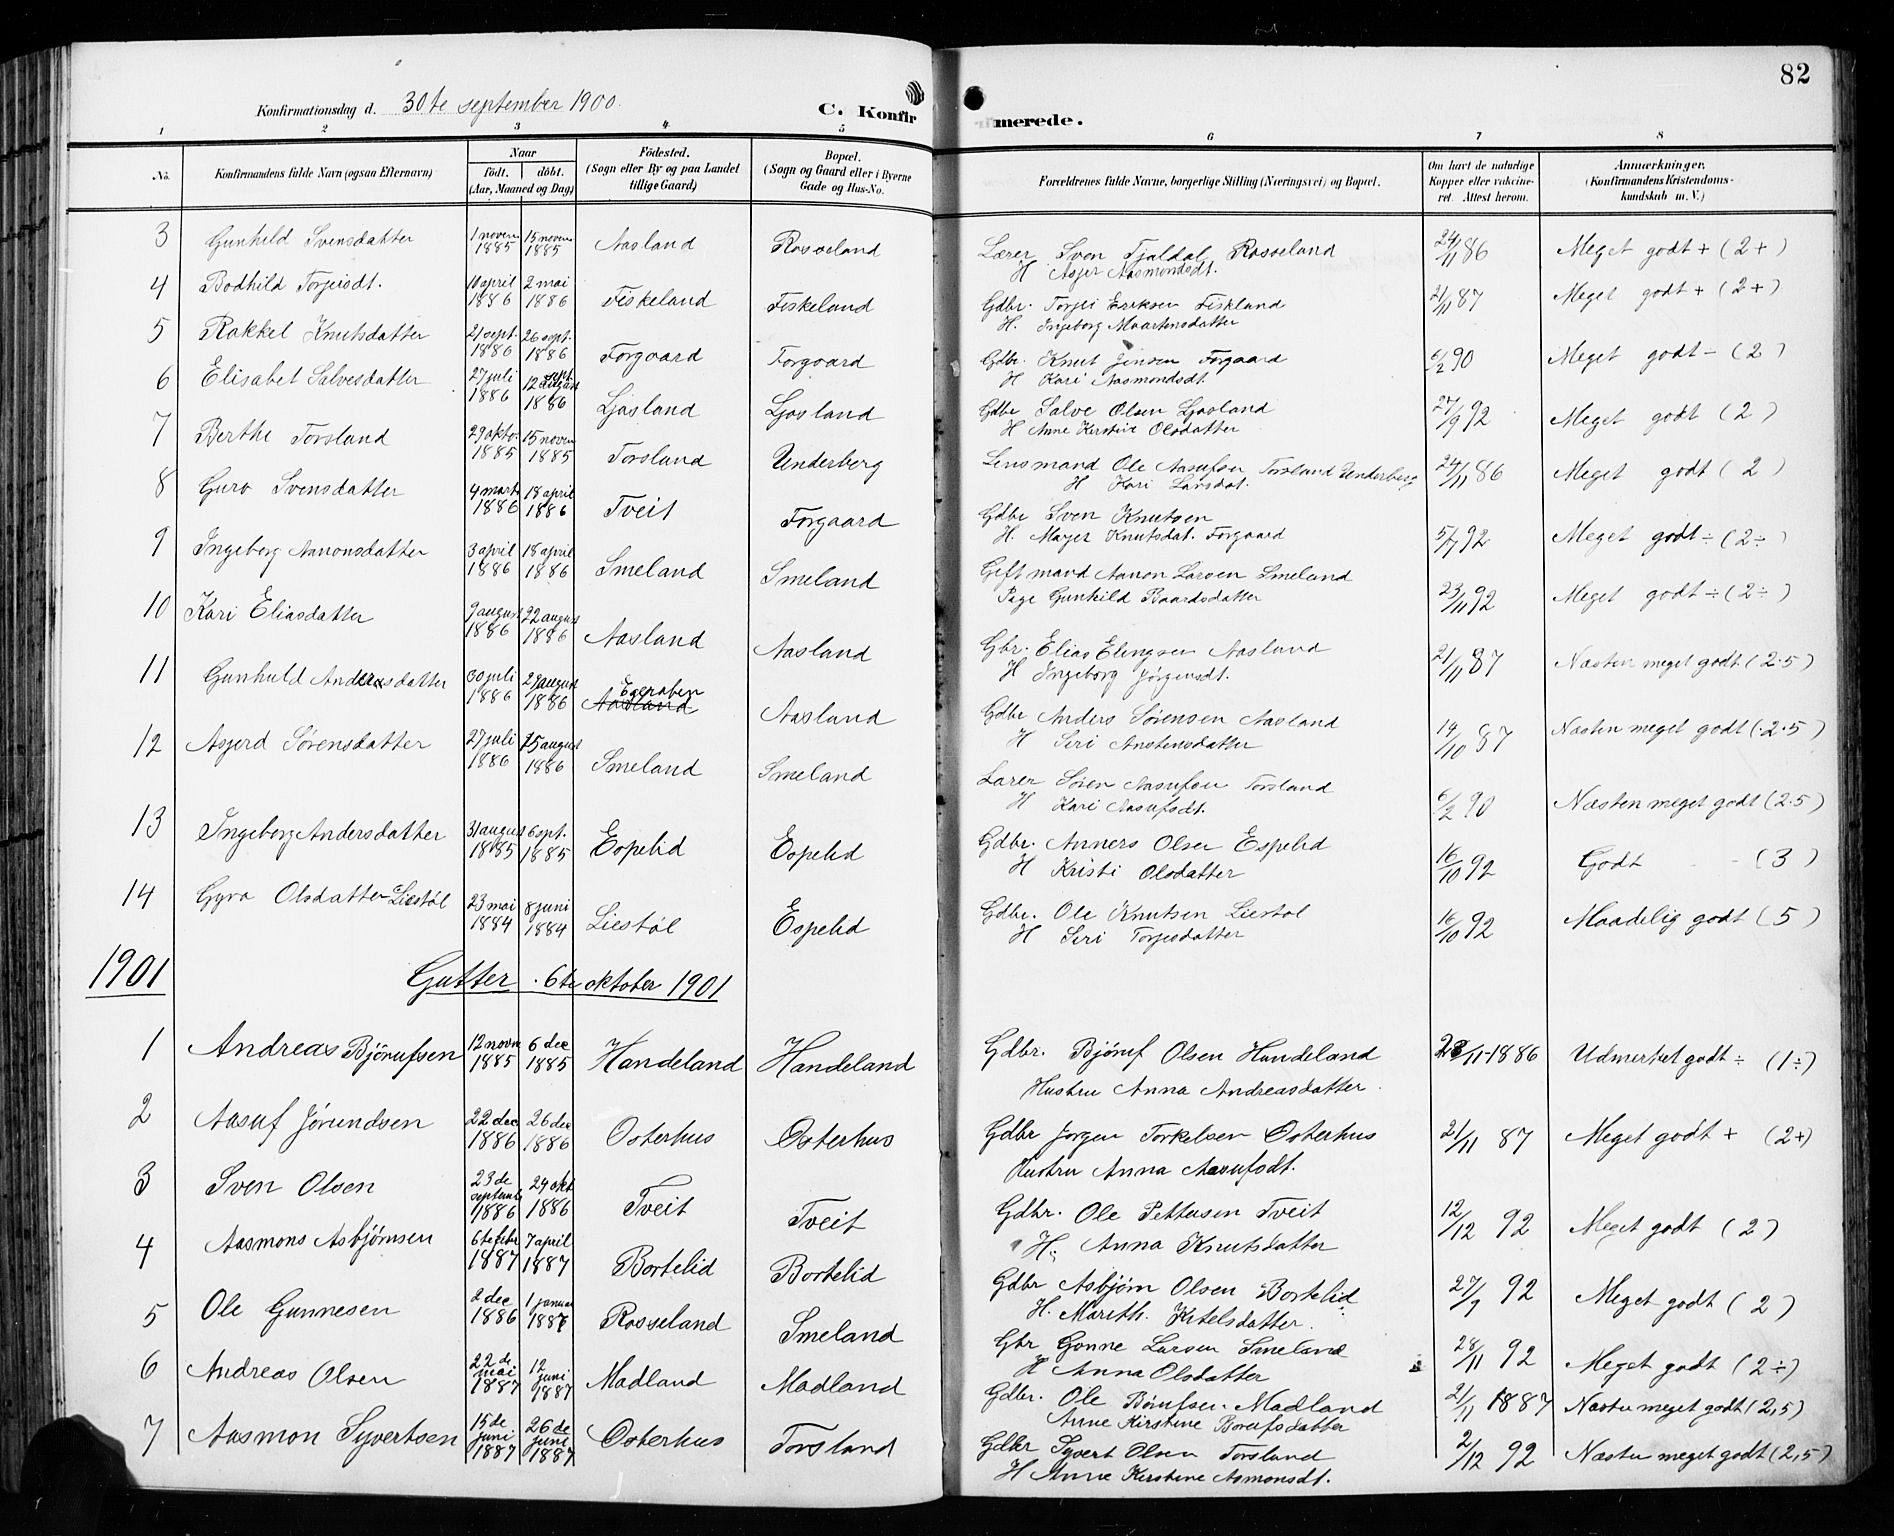 82
Konfirmationsdag d. 30te september 1900.
C. Konfirmerede.
1 2 3 4 5 6 7 8
No. Konfirmandens fulde Navn (ogsaa Efternavn) Naar født. døbt. (Aar, Maaned og Dag) Fødested. (Sogn eller By og paa Landet tillige Gaard) Bopæl. (Sogn og Gaard eller i Byerne Gade og Hus-No. Forældrenes fulde Navne, borgerlige Stilling (Næringsvei) og Bopæl. Om havt de naturlige Kopper eller vakcineret. Attest herom. Anmærkninger. (Konfirmandens Kristendomskundskab m. V.)
3 Gunhild Svensdatter 1 novem 1885 15 novem 1885 Aasland Rosseland Lærer Sven Tjaldal Rosseland 24/11 86 Meget godt + (2+)
H Asjer Aasmondsdt.
4 Bodhild Torjusdt. 10 april 1886 2 mai 1886 Fiskeland Fiskeland Gdbr. Torjus Eriksen Fiskland 21/11 87 Meget godt + (2+)
H. Ingeborg Maartensdatter
5 Rakkel Knutsdatter 21 sept. 1886 26 sept. 1886 Forgaard Forgaard Gdbr. Knut Jensen Forgaard 6/2 90 Meget godt - (2)
H Kari Aasmondsdt.
6 Elisabet Salvesdatter 27 juli 1886 12 sept 1886 Ljosland Ljosland Gdbr Salve Olsen Ljosland 27/9 92 Meget godt (2)
H Anne Kerstine Olsdatter
7 Berthe Torsland 29 oktor 1885 15 novem 1885 Torsland Underberg Lensmand Ole Aasufsen Torsland Underberg 24/11 86 Meget godt (2
H Kari Larsdat.
8 Guro Svensdatter 4 marts 1886 18 april 1886 Tveit Forgaard Gdbr Sven Knutsen 5/7 92 Meget godt ÷ (2÷)
H. Marjer Knutsdat. Forgaard
9 Ingeborg Aanonsdatter 3 april 1886 18 april 1886 Smeland Smeland Gift mand Aanon Larsen Smeland 23/11 92 Meget godt ÷ (2÷)
Pige Gunhild Baardsdatter
10 Kari Eliasdatter 9 august 1886 22 august 1886 Aasland Aasland Gbr. Elias Elingsen Aasland 21/11 87 Næsten meget godt (2.5)
H Ingeborg Jørgensdt.
11 Gunhuld Andersdatter 30 juli 1886 29 august 1886 Aasland Aasland Gdbr Anders Sørensen Aasland 19/10 87 Næsten meget godt (.2.5)
H Siri Anstensdatter
12 Asjerd Sørensdatter 27 juli 1886 15 august 1886 Smeland Smeland Lærer Søren Aasufsen Torsland 6/2 90 Næsten meget godt (2.5)
H Kari Aasufsdt.
13 Ingeborg Andersdatter 31 august 1885 6 sept. 1885 Espelid Espelid Gdbr. Anners Olsen Espelid 16/10 92 Godt (3)
H Kristi Olsdatter
14 Gyro Olsdatter Liestøl 23 mai 1884 8 juni 1884 Liestøl Espelid Gdbr. Ole Knutsen Liestøl 16/10 92 Maadelig godt (5)
H Siri Torjusdatter
1901 Gutter . 6te oktober 1901
1 Andreas Bjørufsen 12 novm 1885 6 dec 1885 Handeland Handeland Gdbr. Bjøruf Olsen Handeland 28/11-1886 Udmerket godt ÷ (1÷)
Hustru Anna Andreasdatter.
2 Aasuf Jørundsen 22 dec 1886 26 dec 1886 Osterhus Osterhus Gdbr Jorgen Torkelsen Osterhus 21/11 87 Meget godt + (2+)
Hustru Anna Aasufsdt.
3 Sven Olsen 23 de septemb 1886 24 okt 1886 Tveit Tveit Gdbr. Ole Pettersen Tveit 12/12 92 Meget godt (2)
H. Anna Knutsdatter
4 Aasmons Asbjørnsen 6te febr 1887 7 april 1887 Bortelid Bortelid Gdbr Asbjørn Olsen Bortelid 27/9 92 Meget godt (2)
H. Mareth. Ketelsdatter.
5 Ole Gunnesen 2 dec 1886 1 januar 1887 Rosseland Smeland Gbr Gonne Larsen Smeland 28/11 92 Meget godt (2÷)
H Anna Olsdatter
6 Andreas Olsen 22 de mai 1887 12 juni 1887 Madland Madland Gdbr. Ole Børufsen Madland 21/11 1887 Næsten meget godt (2,5)
Anne Kirstine Borufsdatter
7 Aasmon Syvertsen 15 de juni 1887 26 de juni 1887 Osterhus Torsland Gdbr Syvert Olsen Torsland 2/12 92 Næsten meget godt (2,5)
H Anne Kerstine Asmonsdt.